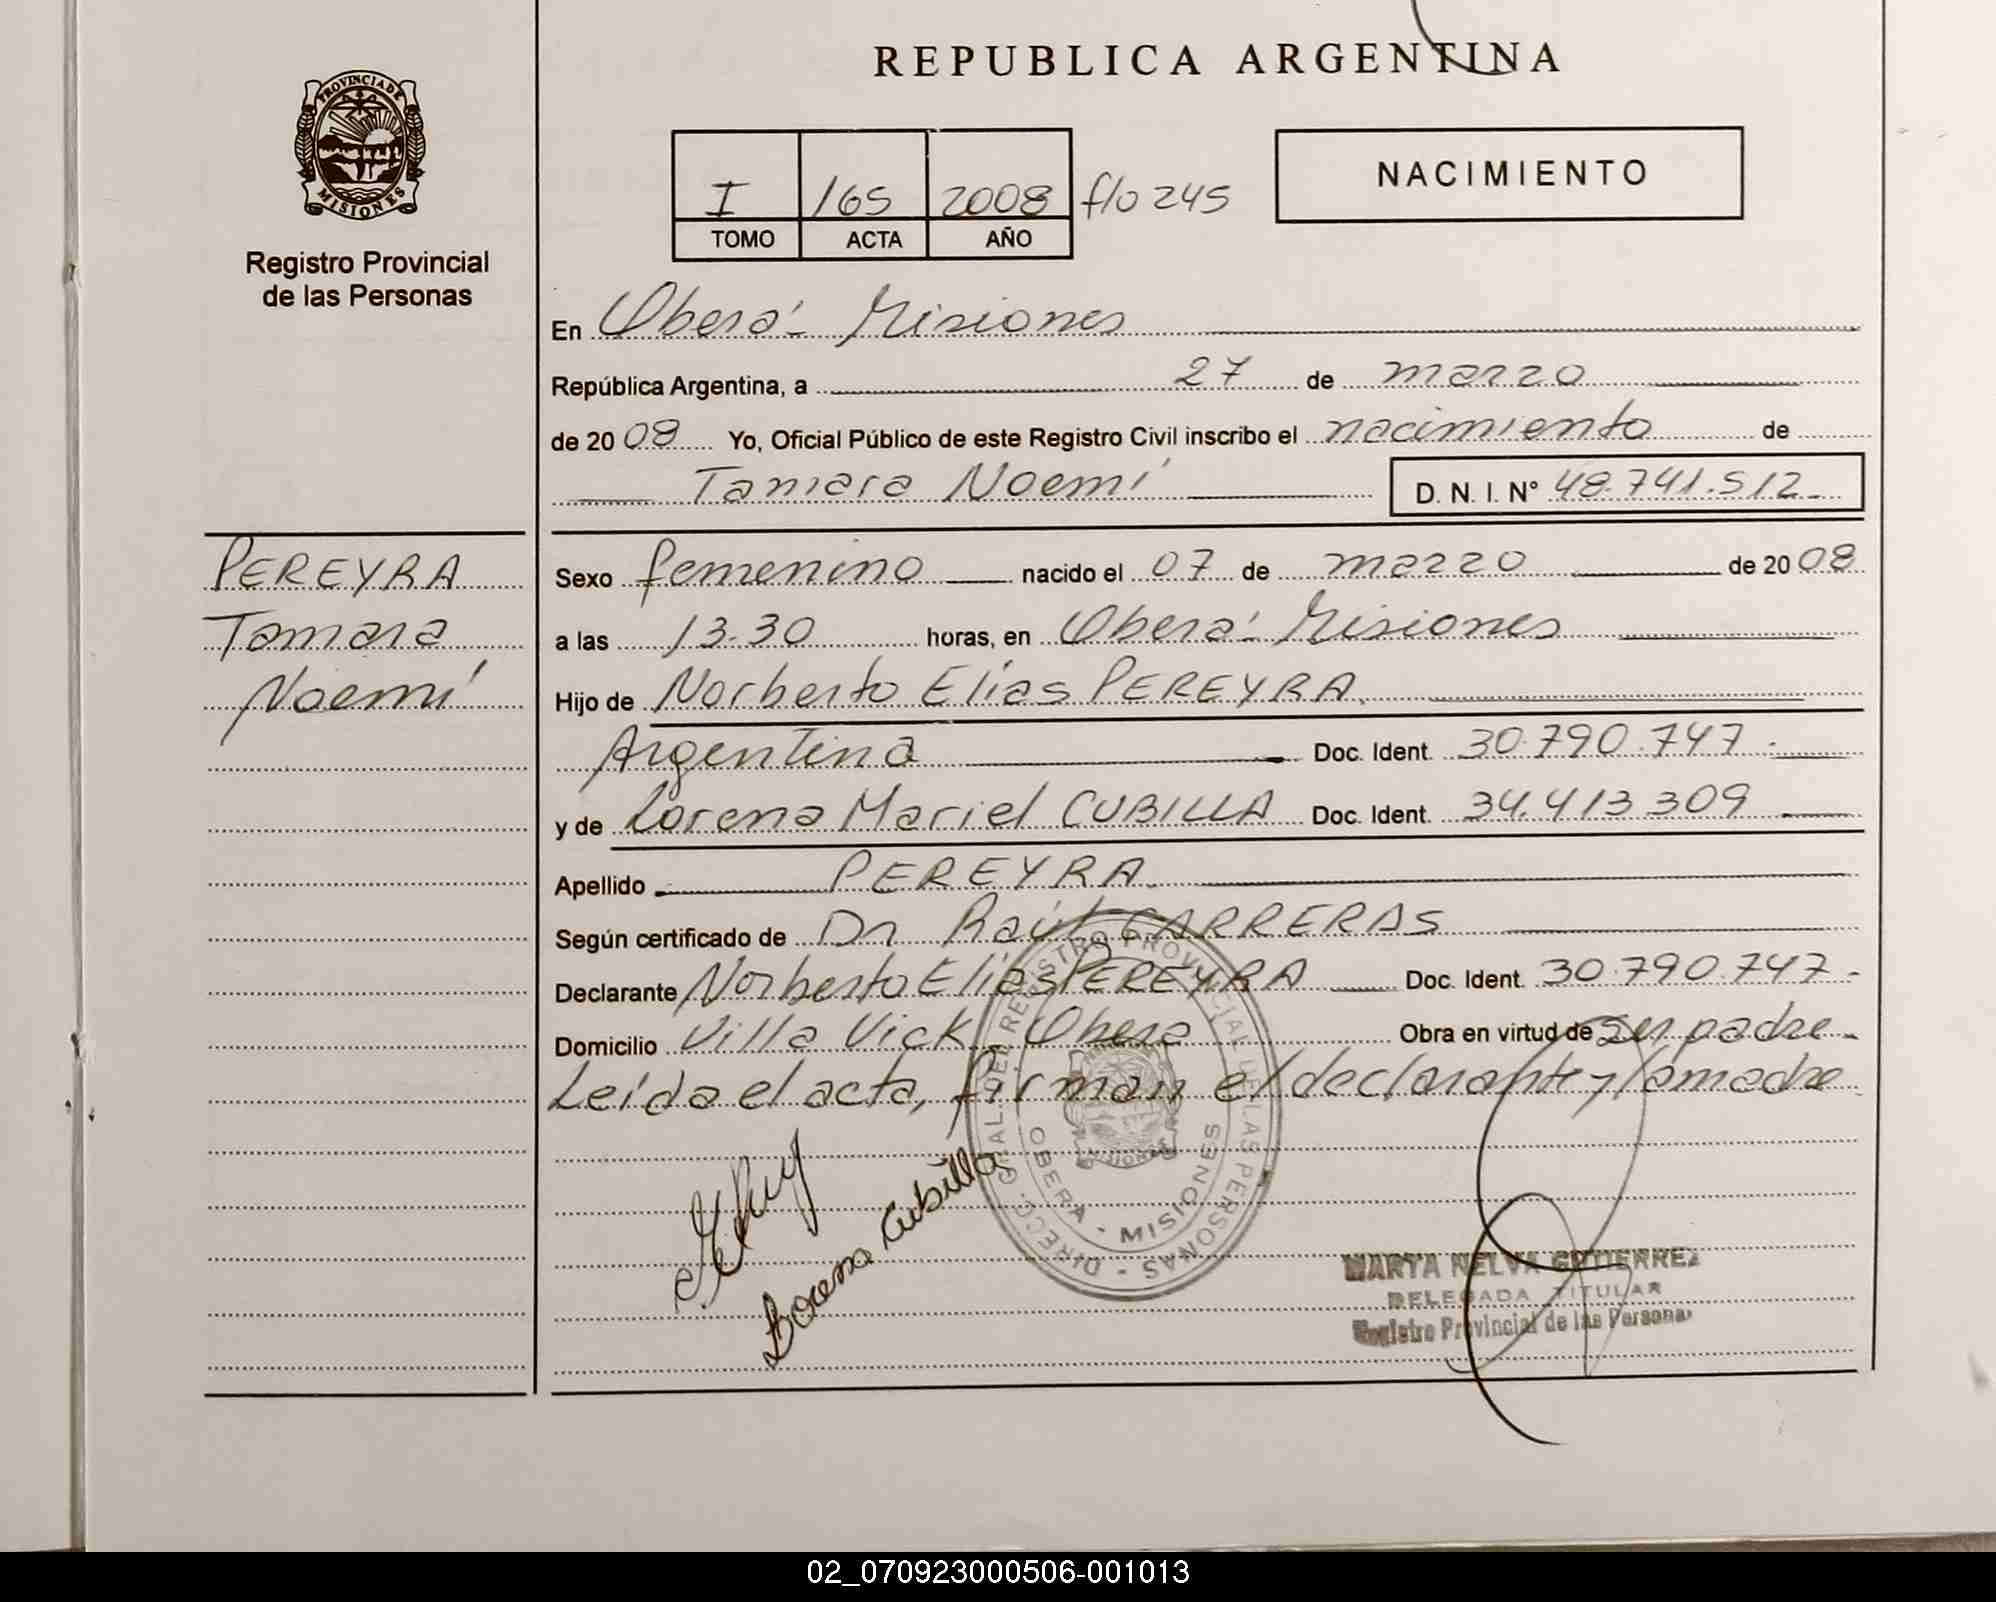 REPUBLICA ARGENTINA
PROVINCIA DE MISIONES
Registro Provincial
de las Personas
I 165 2008 flo 245
TOMO ACTA AÑO
NACIMIENTO
En Oberá - Misiones
República Argentina, a 27 de marzo
de 2008 Yo, Oficial Público de este Registro Civil inscribo el nacimiento de
Tamara Noemí D. N. I. N° 48.741.512
PEREYRA
Tamara
Noemí
Sexo femenino nacido el 07 de marzo de 2008
a las 13.30 horas, en Oberá - Misiones
Hijo de Norberto Elías PEREYRA
Argentina Doc. Ident. 30.790.747
y de Lorena Mariel CUBILLA Doc. Ident. 34.413.309
Apellido PEREYRA
Según certificado de Dr Raúl CARRERAS
Declarante Norberto Elías PEREYRA Doc. Ident. 30.790.747
Domicilio Villa Vick Oberá Obra en virtud de ser padre
Leída el acta, firman el declarante y la madre
Lorena Cubilla
DIRECC. GRAL. DEL REGISTRO PROVINCIAL DE LAS PERSONAS
OBERA - MISIONES
MARTA NELVA GUTIERREZ
DELEGADA TITULAR
Registro Provincial de las Personas
02_070923000506-001013